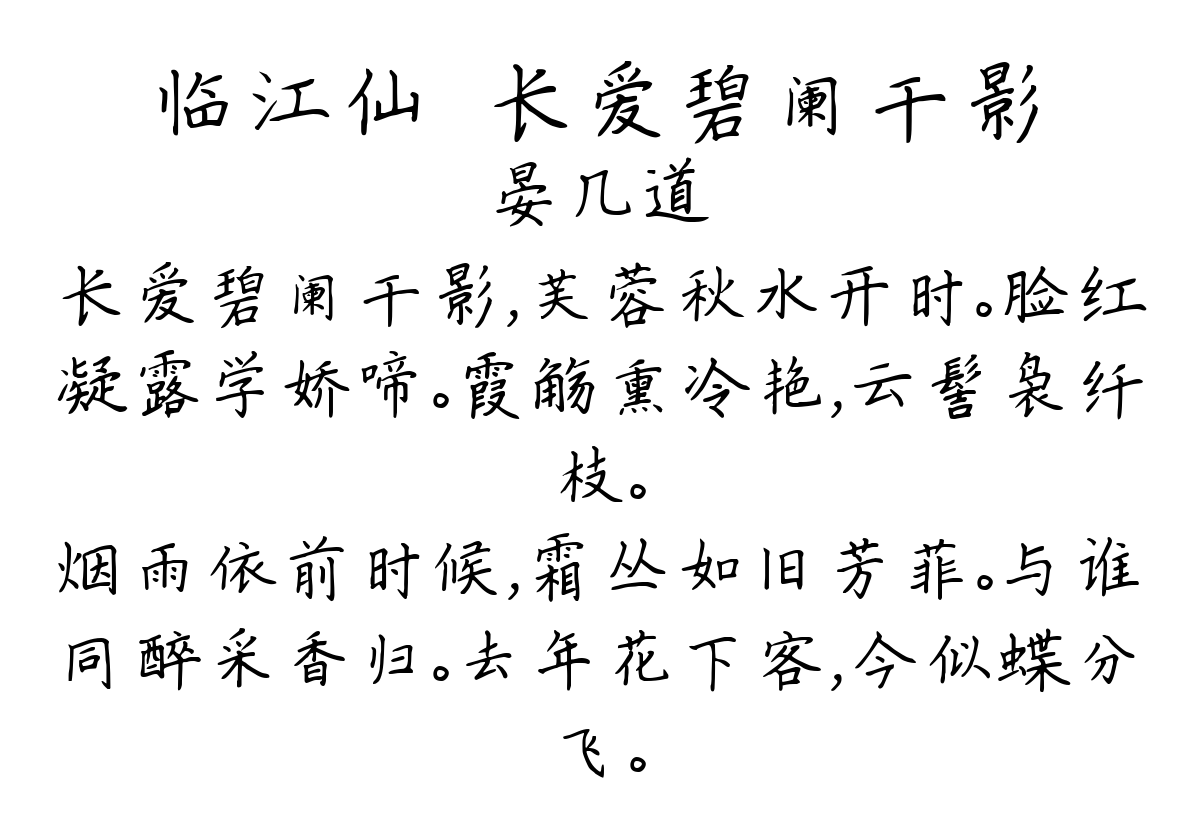 临江仙 长爱碧阑干影
晏几道
长爱碧阑干影,芙蓉秋水开时。脸红
凝露学娇啼。霞觞熏冷艳,云髻袅纤
枝。
烟雨依前时候,霜丛如旧芳菲。与谁
同醉采香归。去年花下客,今似蝶分
飞。